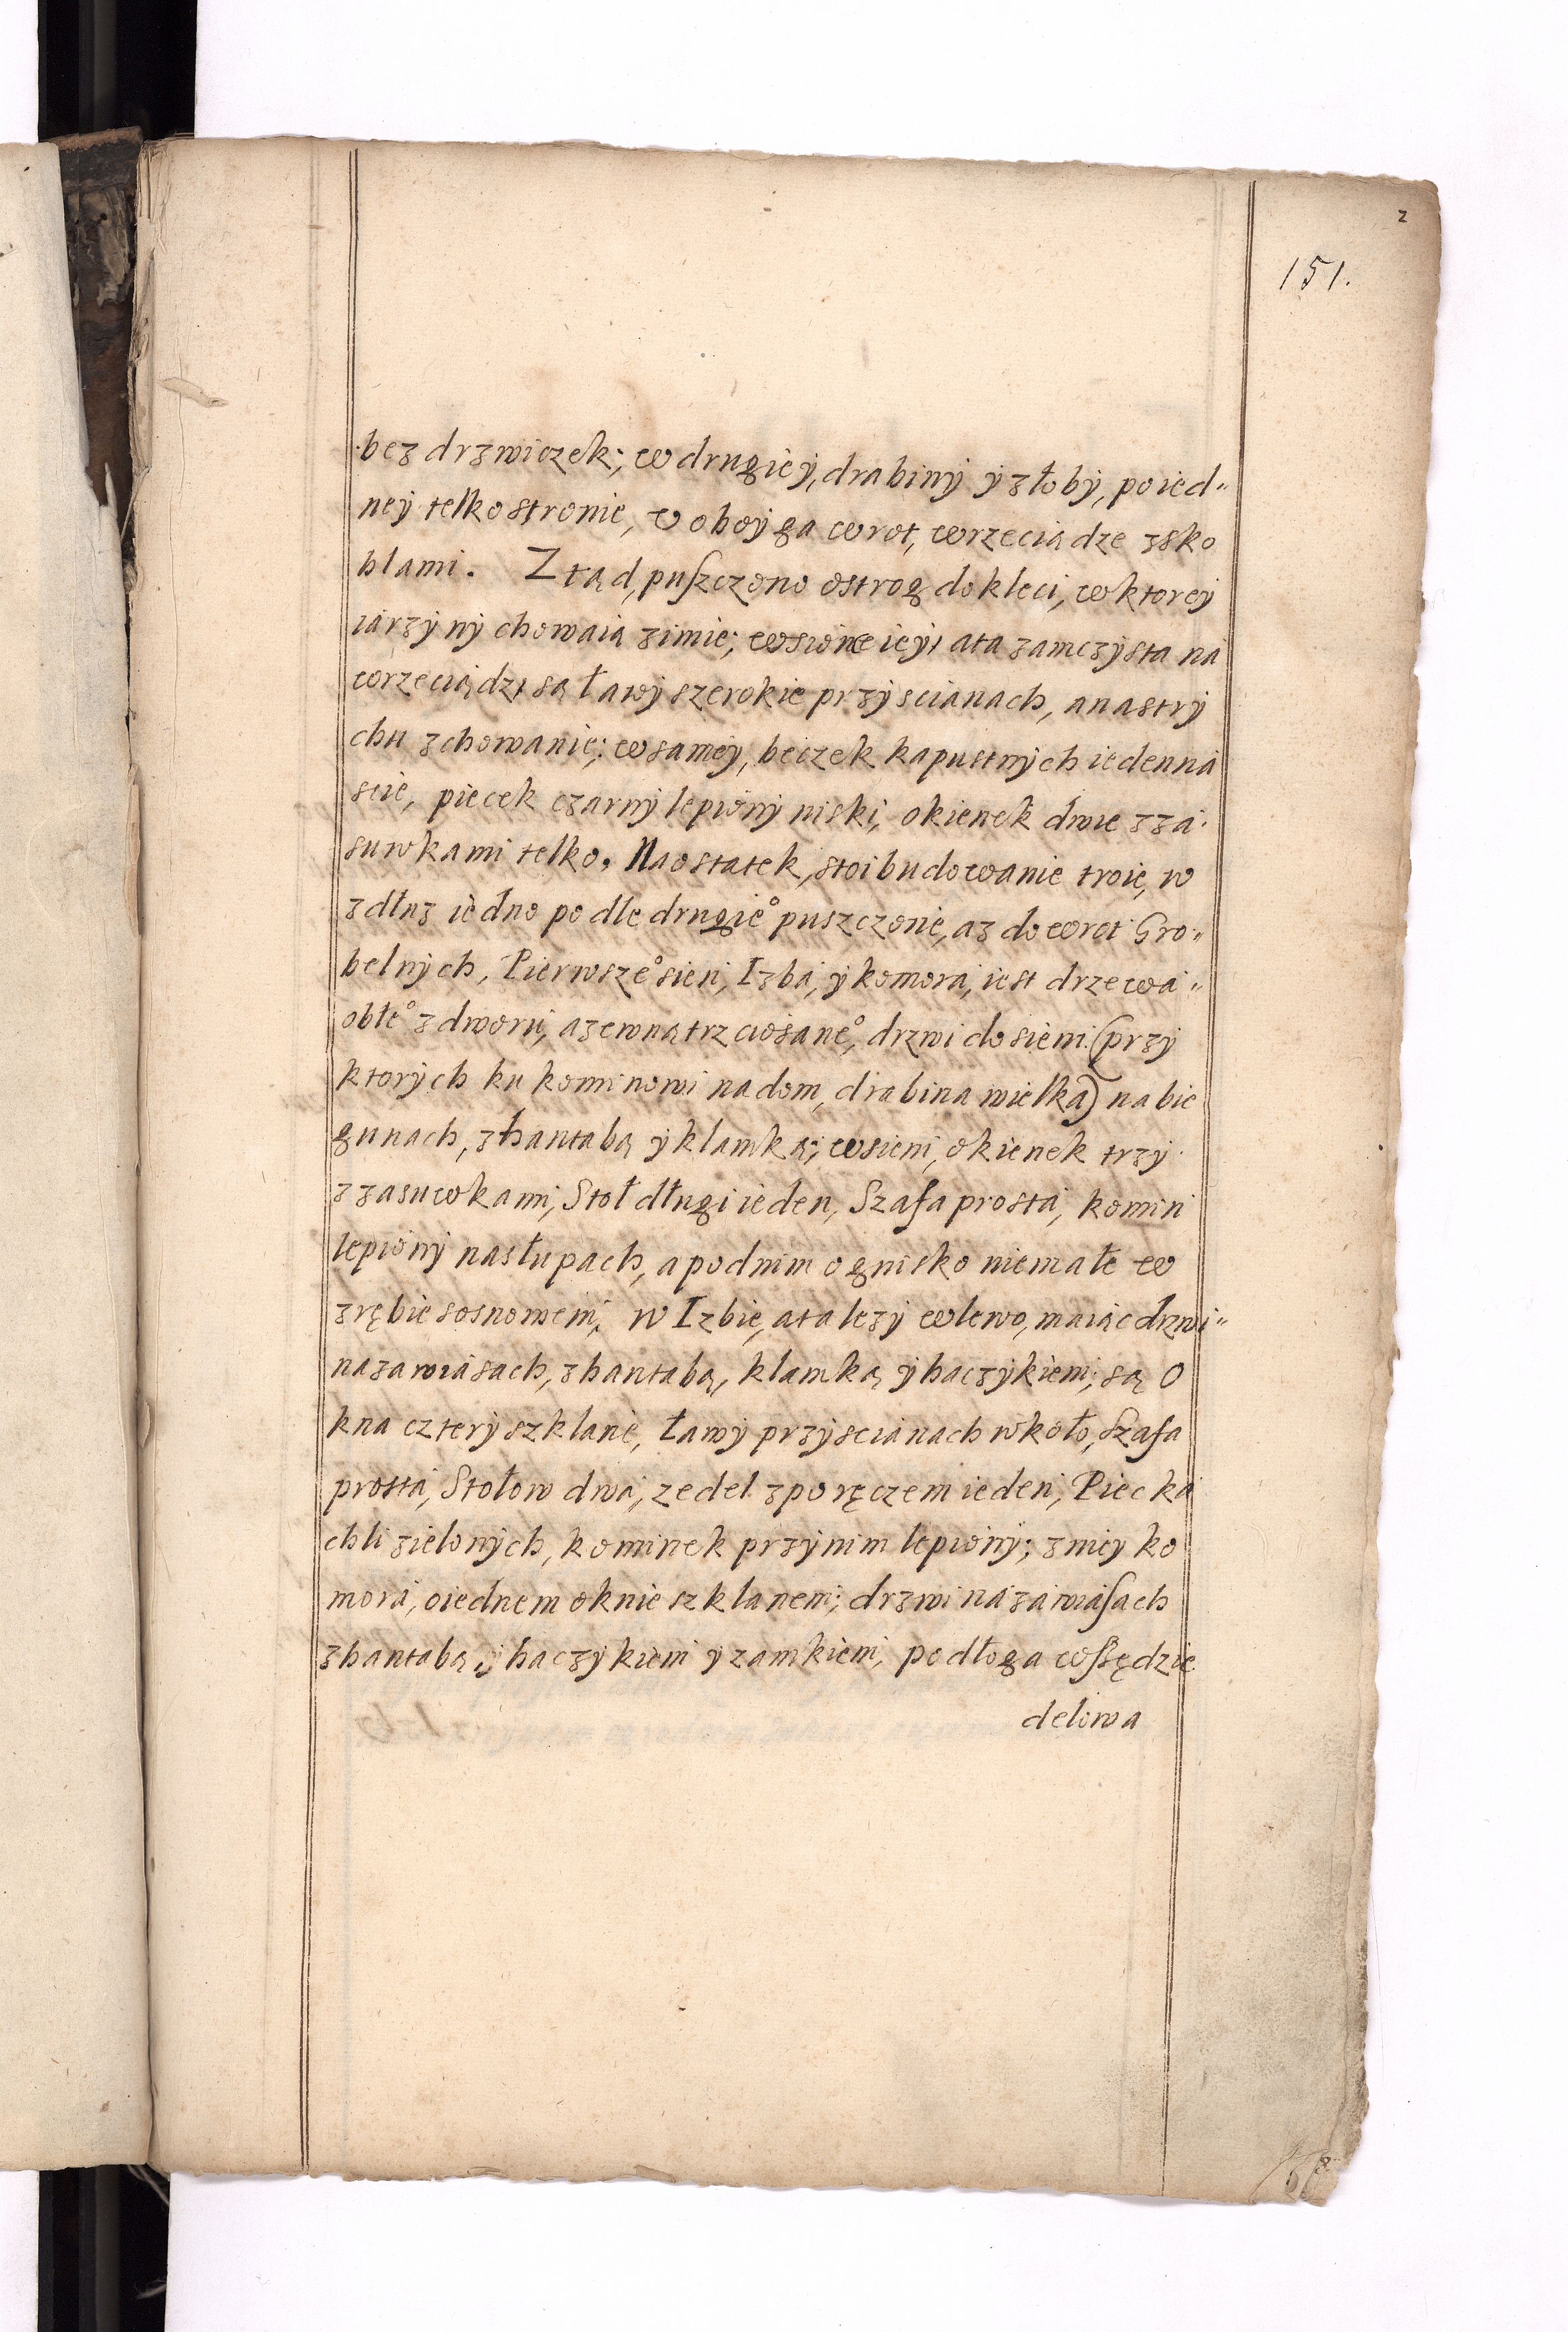 2
151.
bez drzwiczek; w drugiey, drabiny y złoby, poied„
ney telko stronie, v oboyga wrot, wrzeciądze zsko
blami. Ztąd, puszczono ostrog do kleci, w ktorey
iarzyny chowaią zimie; ata zamczysta na
wrzeciądz, są ławy szerokie przyscianach, anastry
chu zchowanie; wsamey, beczek kapustnych iedenna
scie, piecek czarny lepiony niski, okienek dwie zza
suwkami telko. Naostatek, stoi budowanie troie, w
zdłuz iedno podle drugie° puszczonie, az do wrot Gro„
belnych. Pierwsze° sieni, Izba, y komora, iest drzewa„
obłe° zdworu, azewnątrz ciosane°, drzwi do sieni (przy
ktorych ku kominowi nadom, drabina wielka) na bie
gunach, zhantabą y klamką; wsieni, okienek trzy
zzasuwkami, Stoł długi ieden, Szafa prosta, komin
lepiony nasłupach, apodnim ognisko niemałe w
zrębie sosnowem; w Izbie, ata lezy wlewo, maiąc drzwi„
nazawiasach, zhantabą, klamką y haczykiem; są O
kna cztery szklane, ławy przyscianach wkoło, Szafa
prosta, Stołow dwa, zedel zporęczem ieden, Piec ka
chli zielonych, kominek przynim lepiony; zniey ko
mora, oiednem oknie szklanem; drzwi na zawiasach
zhantabą, y haczykiem y zamkiem, podłoga wszędzie
delowa